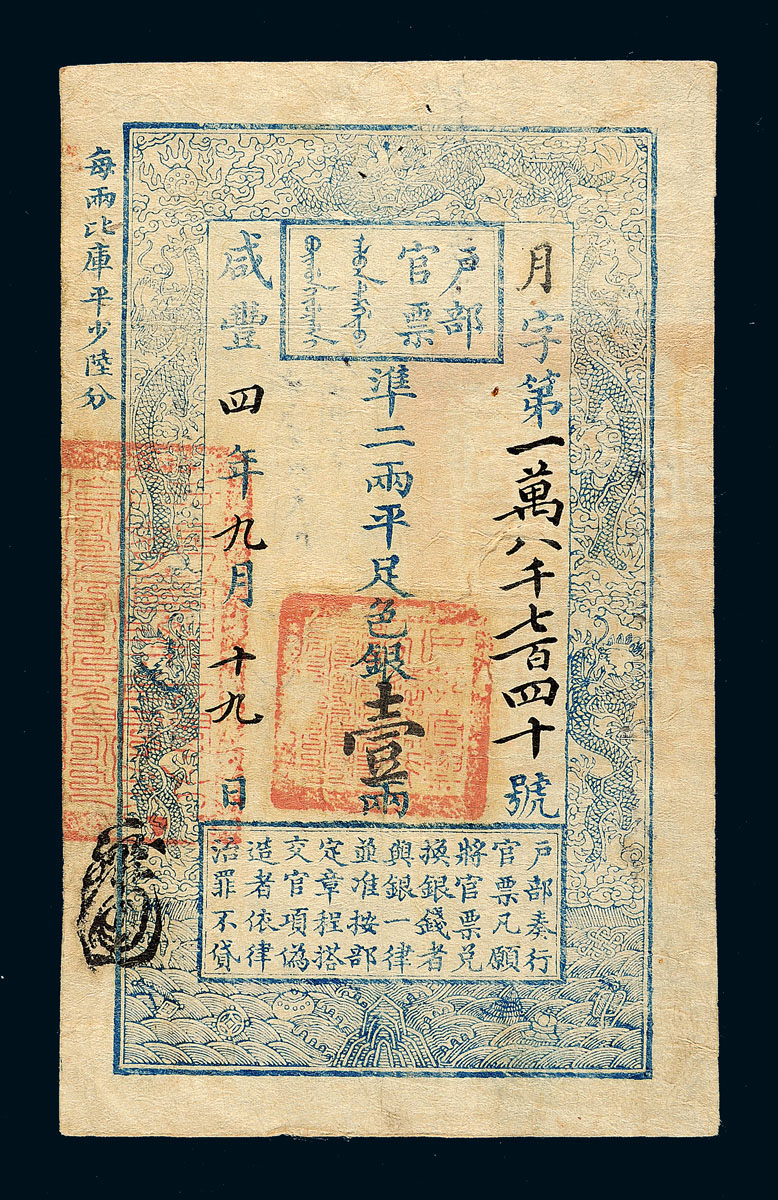 戶部
官票
月字第一萬八千七百四十號
準二兩平足色銀壹兩
咸豐四年九月十九日
每兩比庫平少陸分
戶部奏行
官票凡願
將官票兌
換銀錢者
與銀一律
並准按部
定章程搭
交官項偽
造者依律
治罪不貸